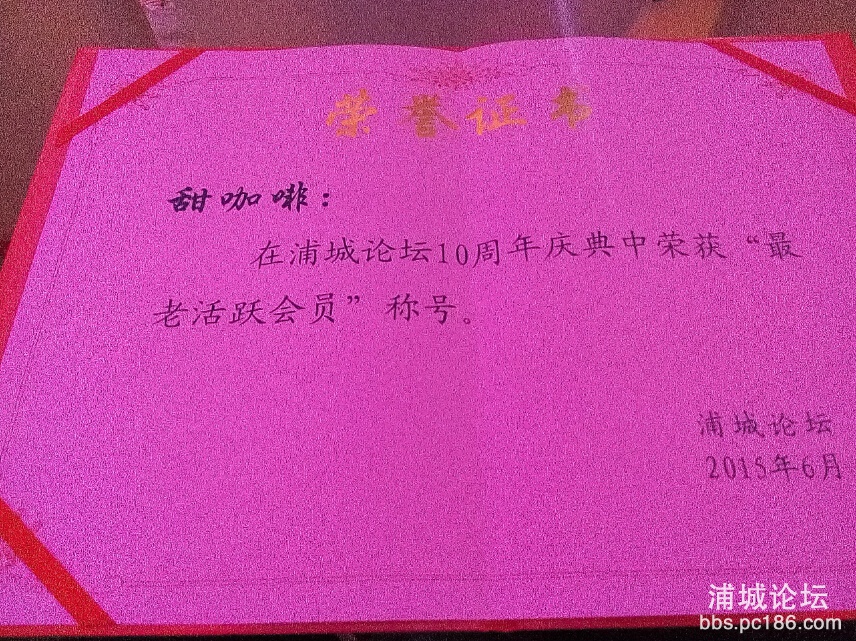 荣誉证书
甜咖啡：
在浦城论坛10周年庆典中荣获“最
老活跃会员”称号。
浦城论坛
2015年6月
浦城论坛
bbs.pc186.com